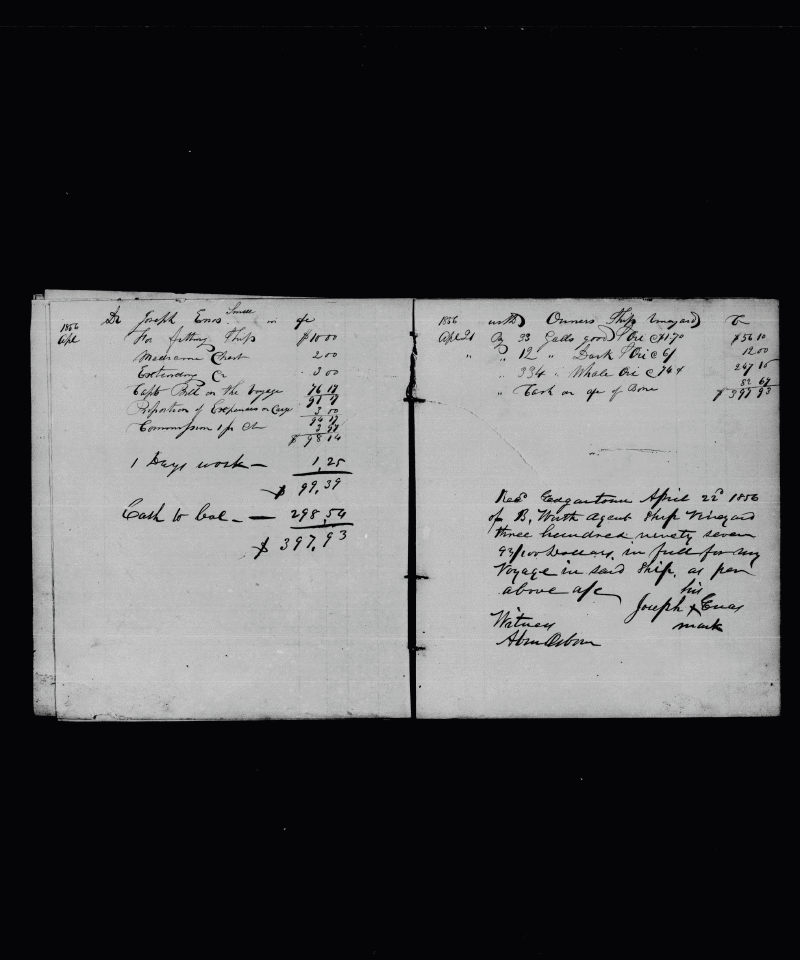 Dr Joseph Enos Small in a/c
1856
Apl For fitting Ship $10 00
Medicine Chest 2 00
Extending Cr 3 00
Capts Bill on the Voyage 76 17
91 17
Proportion of Expenses on Cargo 3 00
94 17
Commission 3 97
$ 98 14
1 Days work — 1,25
$ 99,39
Cash to bal — 298,54
$ 397,93
1856 with Owners Ship Vineyard Cr
Apl 21 By 33 Galls good S Oil @ $1 70 $56 10
" " 12 " Dark S Oil @ 12 00
" 334 " Whale Oil @ 74 ¢ 247 16
" Cash on a/c of Bone 82 67
$ 397 93
Recd Edgartown April 22d 1856
of B, Worth Agent Ship Vineyard
three hundred ninety seven
93/100 Dollars, in full for my
Voyage in said Ship, as per
above a/c his
Joseph X Enas
Witness mark
Abm Osborn